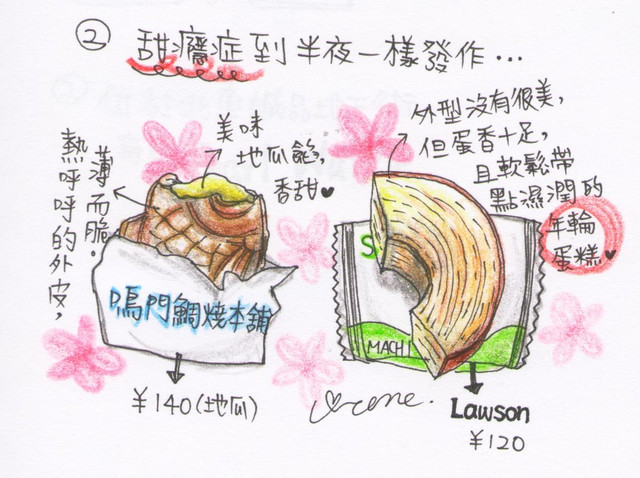 ② 甜癮症到半夜一樣發作...
美味
地瓜餡,
香甜♥
薄而脆。
熱呼呼的外皮,
鳴門鯛燒本舖
¥140(地瓜)
外型沒有很美,
但蛋香十足,
且軟鬆帶
點濕潤的
年輪
蛋糕♥
MACHI
Lawson
¥120